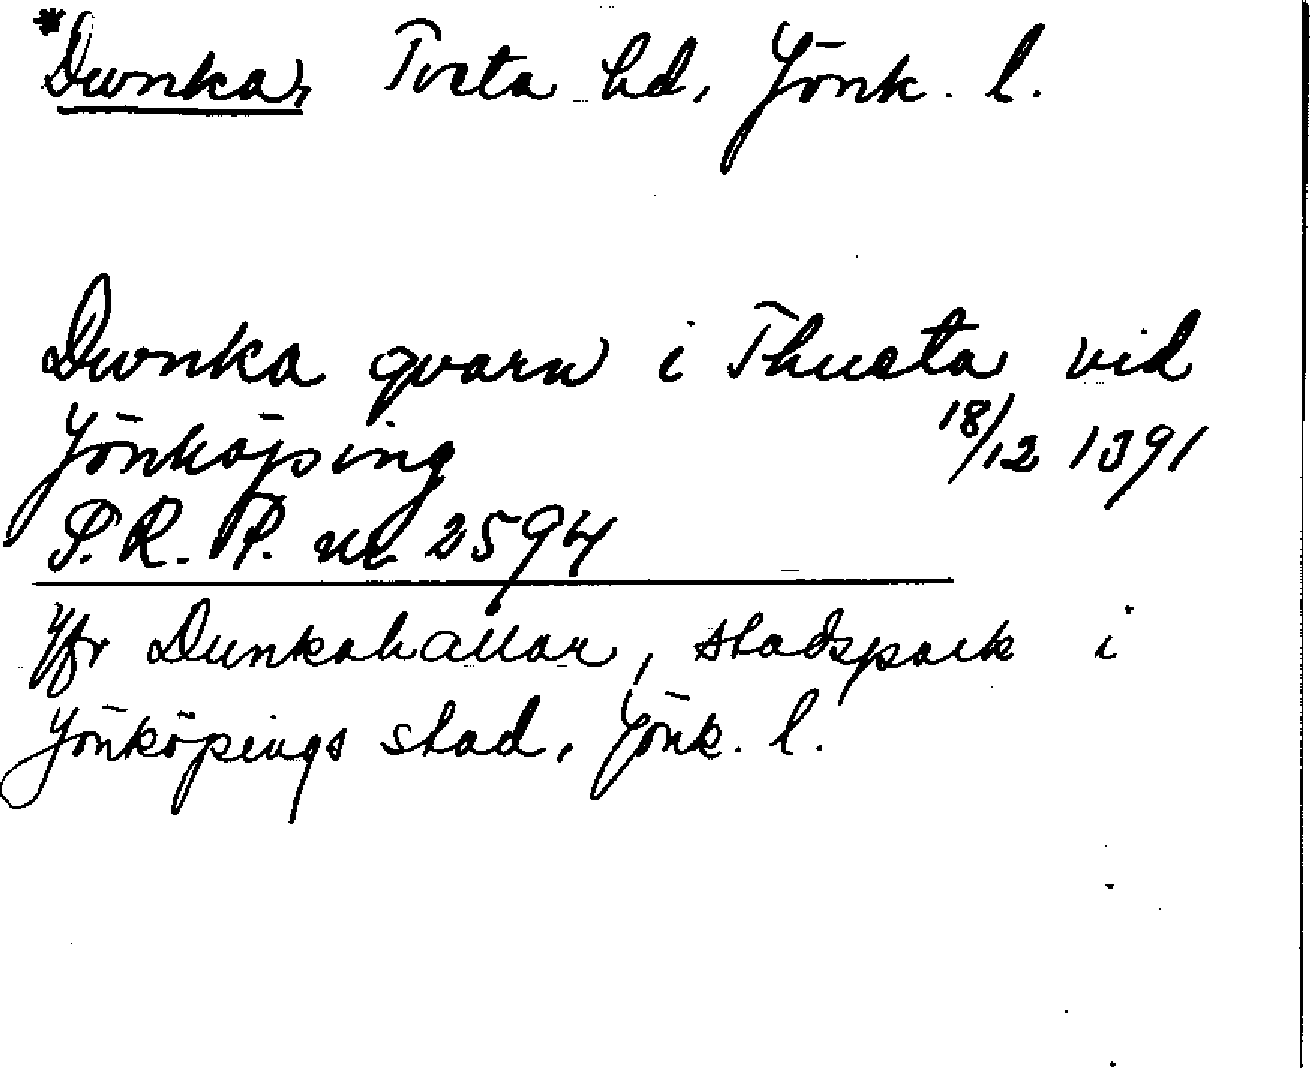 *Dunka, Tveta hd, Jönk. l.
Dunka qvarn i Thueta vid
Jönköping 18/12 1391
S.R.P. nr 2594
Jfr Dunkahallar, stadspark i
Jönköpings stad, Jönk. l.